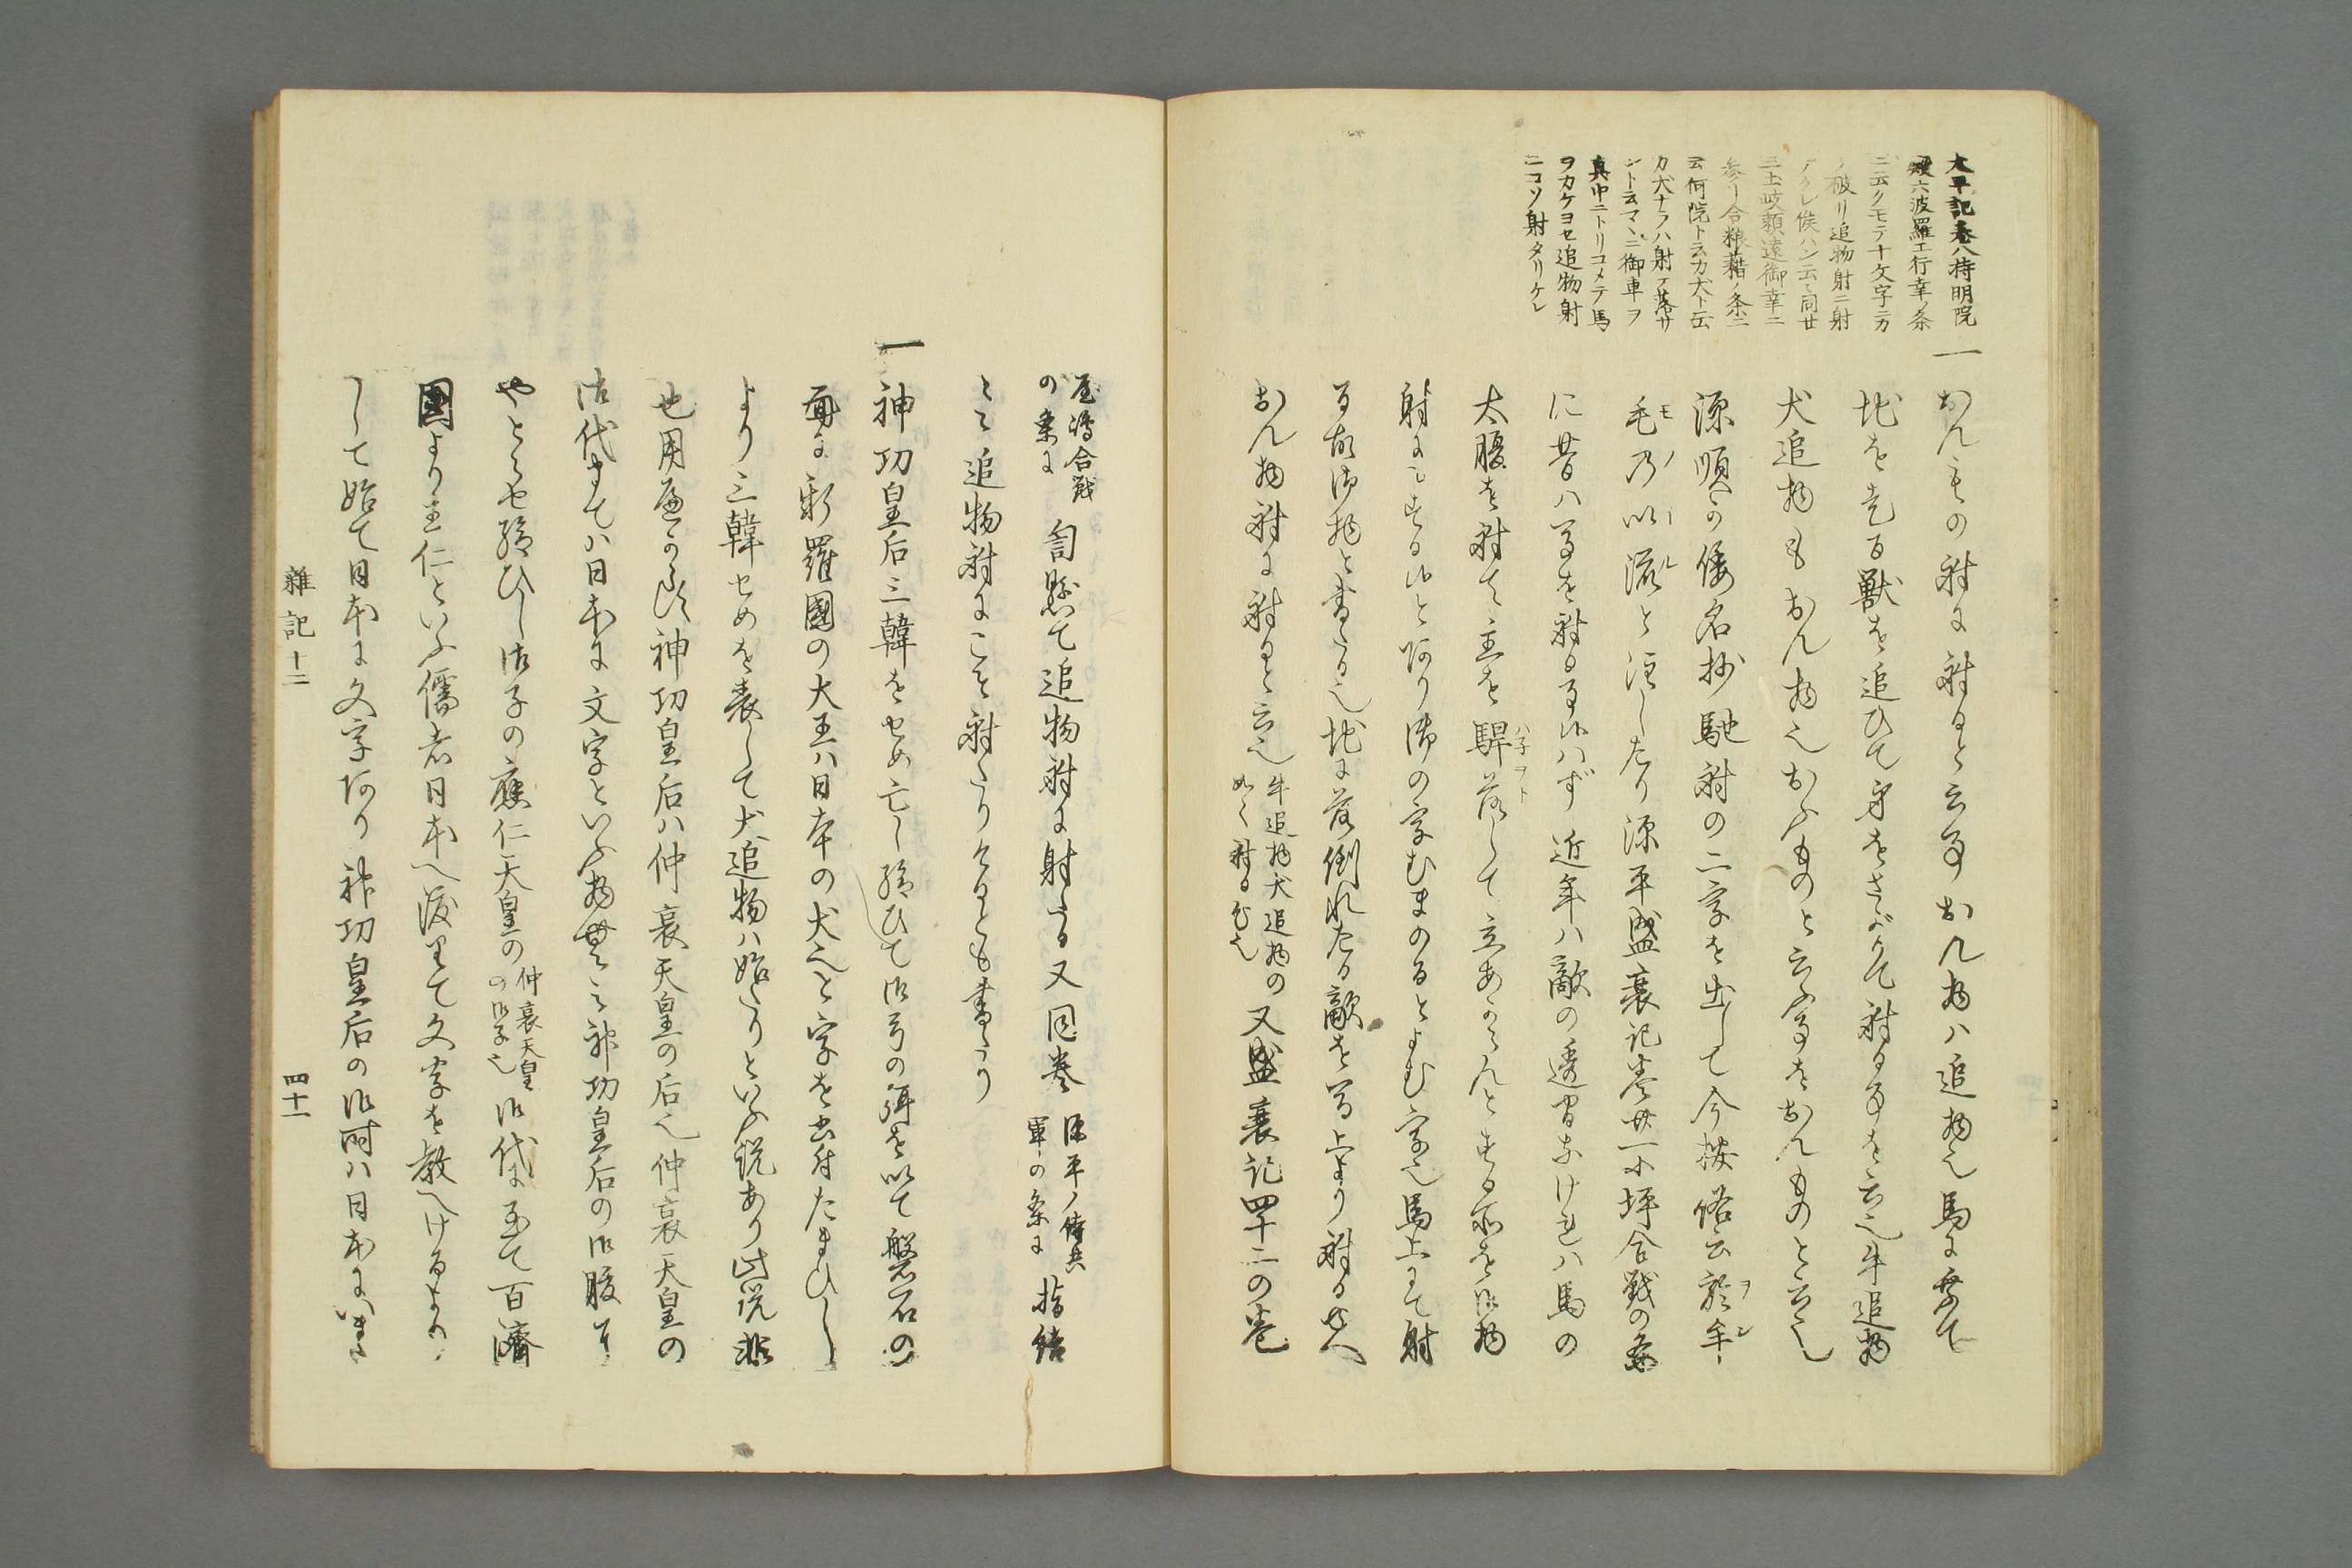 太平記巻八持明院
殿六波羅エ行幸ノ条
ニ云クモテ十文字ニカ
ケ破リ追物射ニ射
テクレ候ハン云々同廿
三土岐頼遠御幸ニ
参リ合狼藉ノ条ニ
云何院ト云カ犬ト云
カ犬ナラハ射テ落サ
ントテ云マヽニ御車ヲ
真中ニトリコメテ馬
ヲカケヨセ追物射
ニコソ射タリケレ
一おんものゐに射ると云事おん物ハ追物也馬に乗て
地を走る獣を追ひて弓をさげて射る事を云也牛追物
犬追物もおん物也おふものと云事をおんものと云也
源順の倭名抄馳射の二字を出して今按俗云於牟
毛乃以流と注したり源平盛衰記巻廿一小坪合戦の条
に昔ハ馬を射る事候ハず近年ハ敵の透間なけれハ馬の
太腹を射て主を驛落して立あからんとする所を御物
射にする候とあり御の字むまのるとよむ字也馬上にて射
る故御物と書たる也地に落倒れたる敵を馬上より射るゆへ
おん物射に射ると云也牛追物犬追物の
如く射る也又盛衰記四十二の巻
屋嶋合戦
の条に 匐懸て追物射に射る又同巻源平ノ侍共
軍の条に指詰
〻〻追物射にこそ射たりけるとも書たり
一神功皇后三韓をせめ亡し給ひて御弓の弭を以て盤石の
面に新羅國の大王ハ日本の犬也と字を書付たまひし
より三韓せめを表して犬追物ハ始たりといふ説あり此説非
也用へからず神功皇后ハ仲哀天皇の后也仲哀天皇の
御代まてハ日本に文字といふ物無之神功皇后の御腹に
やとらせ給ひし御子の應仁天皇の仲哀天皇
の御子也御代に至て百濟
國より王仁といふ儒者日本へ渡りて文字を教へけるより
して始て日本に文字あり神功皇后の御時ハ日本にいまた
雑記十二
四十一